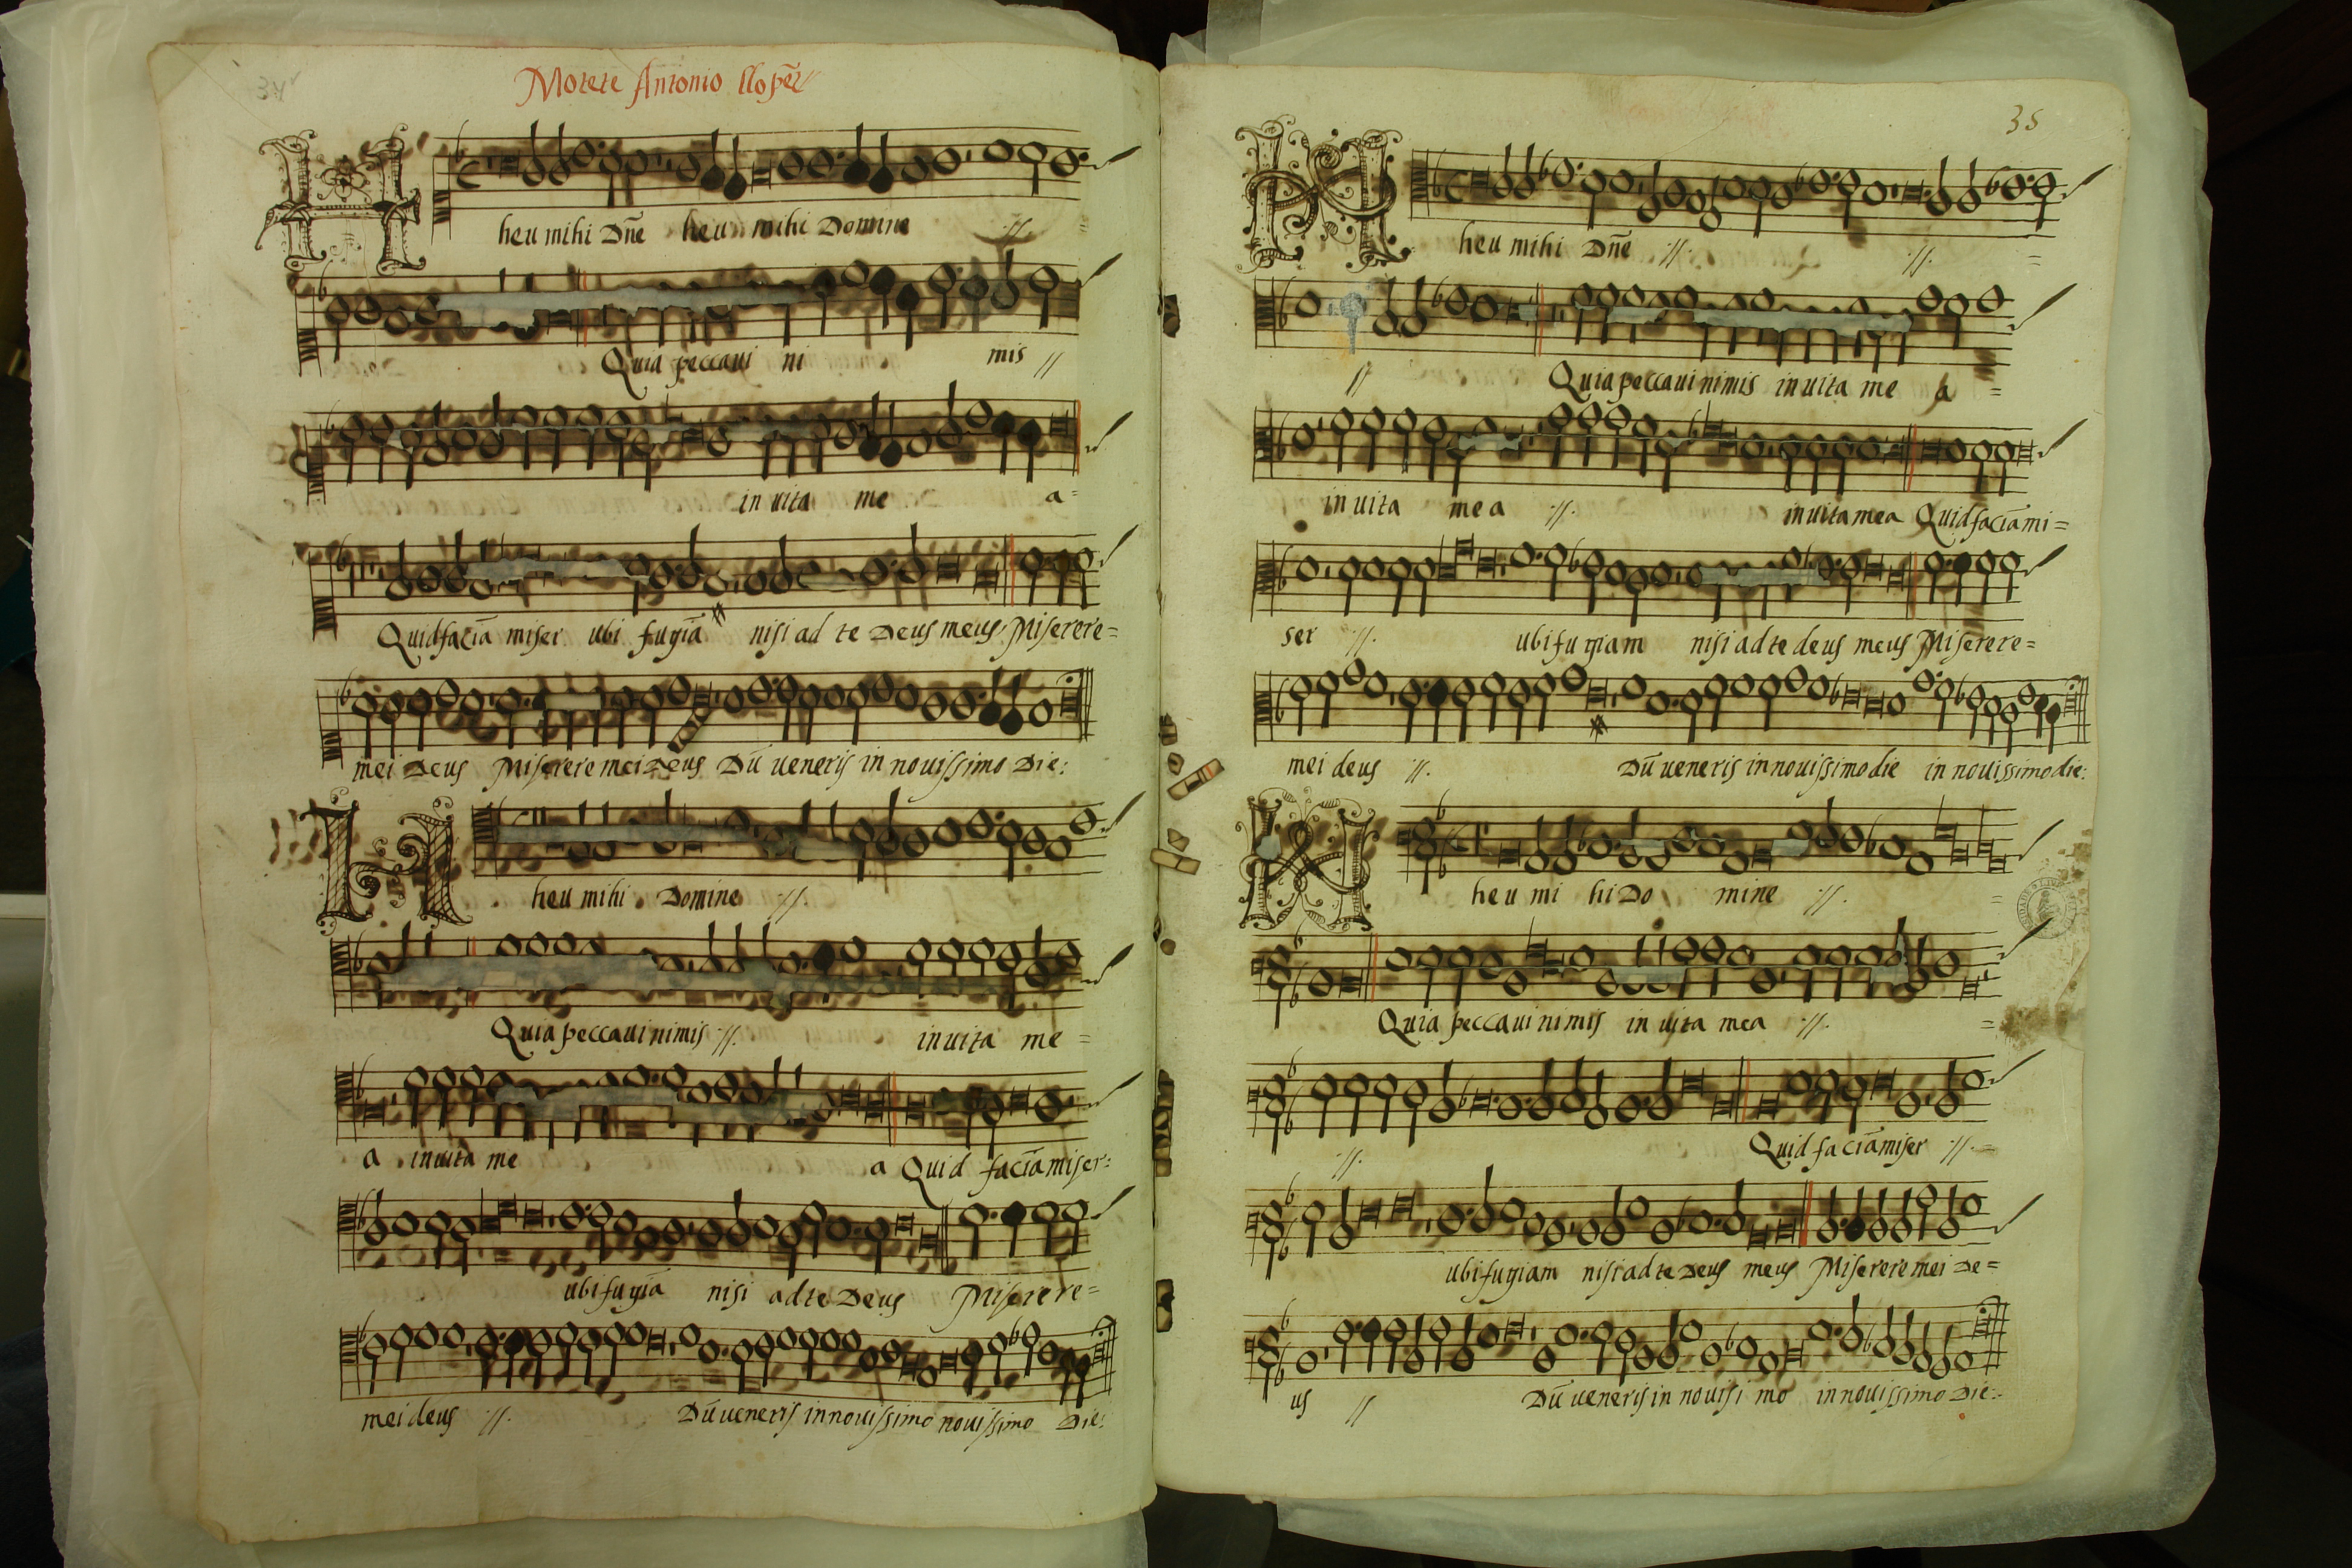 34v
Motete Antonio llopez
H heu mihi Dñe heu mihi Domine ://.
Quia peccaui ni mis //
in uita me a=
Quid faciã miser ubi fugiã nisi ad te Deus meus Miserere=
mei Deus Miserere mei Deus Dũ ueneris in nouissimo Die:
H heu mihi Domine ://.
Quia peccaui nimis ://. in uita me =
a in uita me a Quid faciã miser:
ubi fugiã nisi ad te Deus Miserere=
mei deus ://. Dũ ueneris in nouissimo nouissimo Die:
35
H heu mihi Dñe ://. ://. =
// Quia peccaui nimis in uita me a =
in uita mea ://. in uita mea Quid faciã mi=
ser ://. ubi fugiam nisi ad te deus meus Miserere=
mei deus ://. Dũ ueneris in nouissimo die in nouissimo die:
H heu mi hi Do mine ://. =
Quia peccaui nimis in uita mea ://. =
://. Quid faciã miser ://. =
ubi fugiam nisi ad te Deus meus Miserere mei De=
us // Dũ ueneris in nouisi mo in nouissimo Die:.